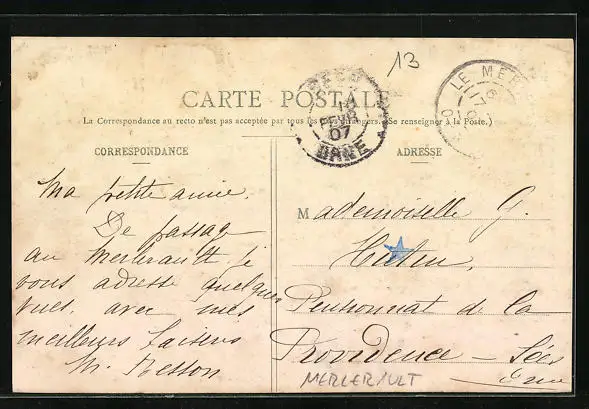 13
CARTE POSTALE
La Correspondance au recto n'est pas acceptée par tous les pays étrangers. (Se renseigner à la Poste.)
CORRESPONDANCE
ADRESSE
LE MER
07
ORNE
Ma petite amie.
De passage
au Merlerault je
vous adresse quelques
vues, avec mes
meilleurs baisers
Mademoiselle G.
Pensionnat de la
Providence - Sées
Orne
MERLERAULT